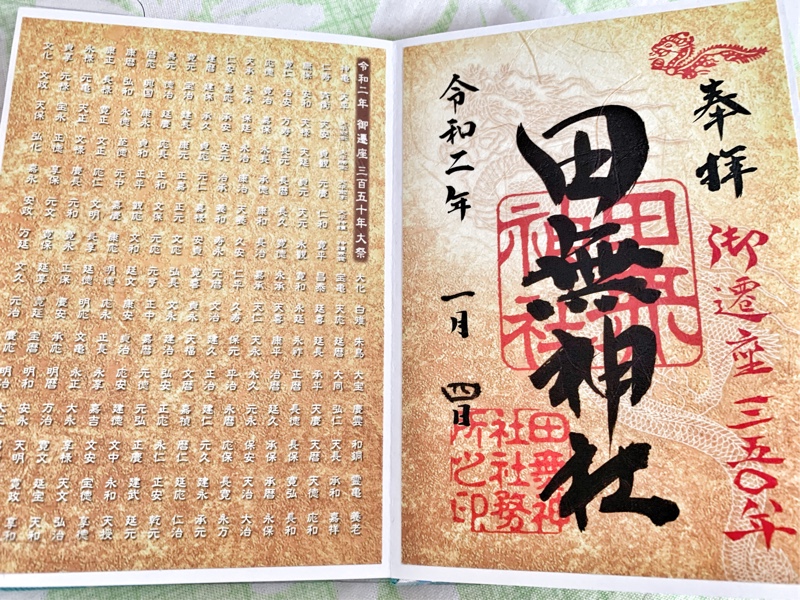 奉拝
御遷座三五〇年
田無神社
令和二年 一月 四日
田無神社
田無神社社務所之印
令和二年 御遷座 三百五十年大祭
大化 白雉 朱鳥 大宝 慶雲 和銅 霊亀 養老
神亀 天平 宝亀 天応 延暦 大同 弘仁 天長 承和 嘉祥
仁寿 斉衡 天安 貞観 元慶 仁和 寛平 昌泰 延喜 延長 承平 天慶 天暦 天徳 応和
康保 安和 天禄 天延 貞元 天元 永観 寛和 永延 永祚 正暦 長徳 長保 寛弘 長和
寛仁 治安 万寿 長元 長暦 長久 寛徳 永承 天喜 康平 治暦 延久 承保 承暦 永保
応徳 寛治 嘉保 永長 承徳 康和 長治 嘉承 天仁 天永 永久 元永 保安 天治 大治
天承 長承 保延 永治 康治 天養 久安 仁平 久寿 保元 平治 永暦 応保 長寛 永万
仁安 嘉応 承安 安元 治承 養和 寿永 元暦 文治 建久 正治 建仁 元久 建永 承元
建暦 建保 承久 貞応 元仁 嘉禄 安貞 寛喜 貞永 天福 文暦 嘉禎 暦仁 延応 仁治
寛元 宝治 建長 康元 正嘉 正元 文応 弘長 文永 建治 弘安 正応 永仁 正安 乾元
嘉元 徳治 延慶 応長 正和 文保 元応 元亨 正中 嘉暦 元徳 元弘 正慶 建武 延元
暦応 興国 康永 貞和 正平 観応 文和 延文 康安 貞治 応安 建徳 文中 永和 天授
康暦 弘和 永徳 至徳 元中 嘉慶 康応 明徳 応永 正長 永享 嘉吉 文安 宝徳 享徳
康正 長禄 寛正 文正 応仁 文明 長享 延徳 明応 文亀 永正 大永 享禄 天文 弘治
永禄 元亀 天正 文禄 慶長 元和 寛永 正保 慶安 承応 明暦 万治 寛文 延宝 天和
貞享 元禄 宝永 正徳 享保 元文 寛保 延享 寛延 宝暦 明和 安永 天明 寛政 享和
文化 文政 天保 弘化 嘉永 安政 万延 文久 元治 慶応 明治